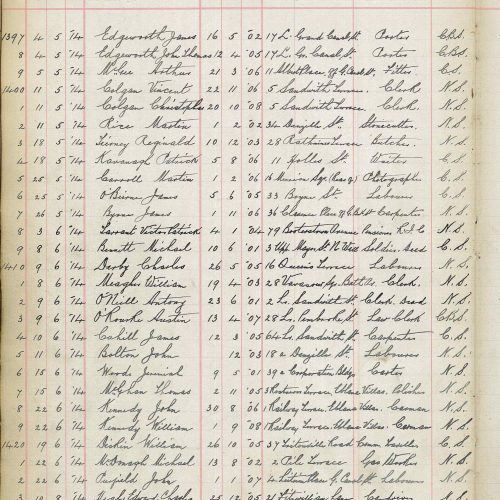 1397 4 5 '14 Edgeworth James 16 5 '02 17 L. Grand Canal St. Porter C.B.S.
8 4 5 '14 Edgeworth John Thomas 12 4 '05 17 L. Gr. Canal St. Porter C.B.S.
9 5 5 '14 McGee Arthur 21 3 '06 11 Place, off G. Canal St. Fitter C.S.
1400 11 5 '14 Colgan Vincent 22 11 '06 5 Sandwith Terrace Clerk N.S.
1 11 5 '14 Colgan Christopher 20 10 '08 5 Sandwith Terrace Clerk N.S.
2 11 5 '14 Rice Martin 1 2 '02 34 Denzille St. Stonecutter N.S.
3 18 5 '14 Tierney Reginald 10 12 '03 28 Rathmines Terrace Butcher N.S.
4 18 5 '14 Kavanagh Patrick 5 8 '06 11 Holles St. Waiter C.S.
5 25 5 '14 Carroll Martin 1 2 '06 16 Merrion Sq. Photographer C.S.
6 25 5 '14 O'Beirne James 5 6 '05 33 Boyne St. Labourer C.S.
7 26 5 '14 Byrne James 1 11 '06 36 Clarence Place Carpenter N.S.
8 3 6 '14 Victor Patrick 4 1 '04 79 Avenue
9 8 6 '14 Bennett Michael 10 6 '01 3 Soldier dead C.S.
1410 9 6 '14 Darby Charles 26 5 '05 16 Queen's Terrace Labourer N.S.
1 8 6 '14 Meagher William 19 4 '03 28 Vavasour Sq. Clerk N.S.
2 9 6 '14 O'Neill Antony 23 6 '01 2 L. Sandwith St. Clerk dead N.S.
3 9 6 '14 O'Rourke Austin 13 4 '07 28 Lr. Pembroke St. Law Clerk C.B.S.
4 10 6 '14 Cahill James 12 3 '05 Sandwith St. Carpenter C.S.
5 11 6 '14 Bolton John 12 '03 18a Denzille St. Labourer N.S.
6 15 6 '14 Woods Jeremiah 9 5 '01 39a Corporation Bldgs. Carter N.S.
7 15 6 '14 Thomas 2 11 '05 3 Terrace, Villas N.S.
8 22 6 '14 Kennedy John 30 8 '06 1 Railway Terrace Villas Carman N.S.
9 22 6 '14 Kennedy William 1 9 '08 Railway Terrace Villas Carman N.S.
1420 19 6 '14 Diskin William 26 10 '05 37 Road Comm. Traveller C.S.
1 22 6 '14 McDonagh Michael 13 8 '02 2 Terrace Gas Worker N.S.
2 22 6 '14 John 1 1 '07 4 Canal St. Labourer N.S.
3 8 '14 2 '05 21